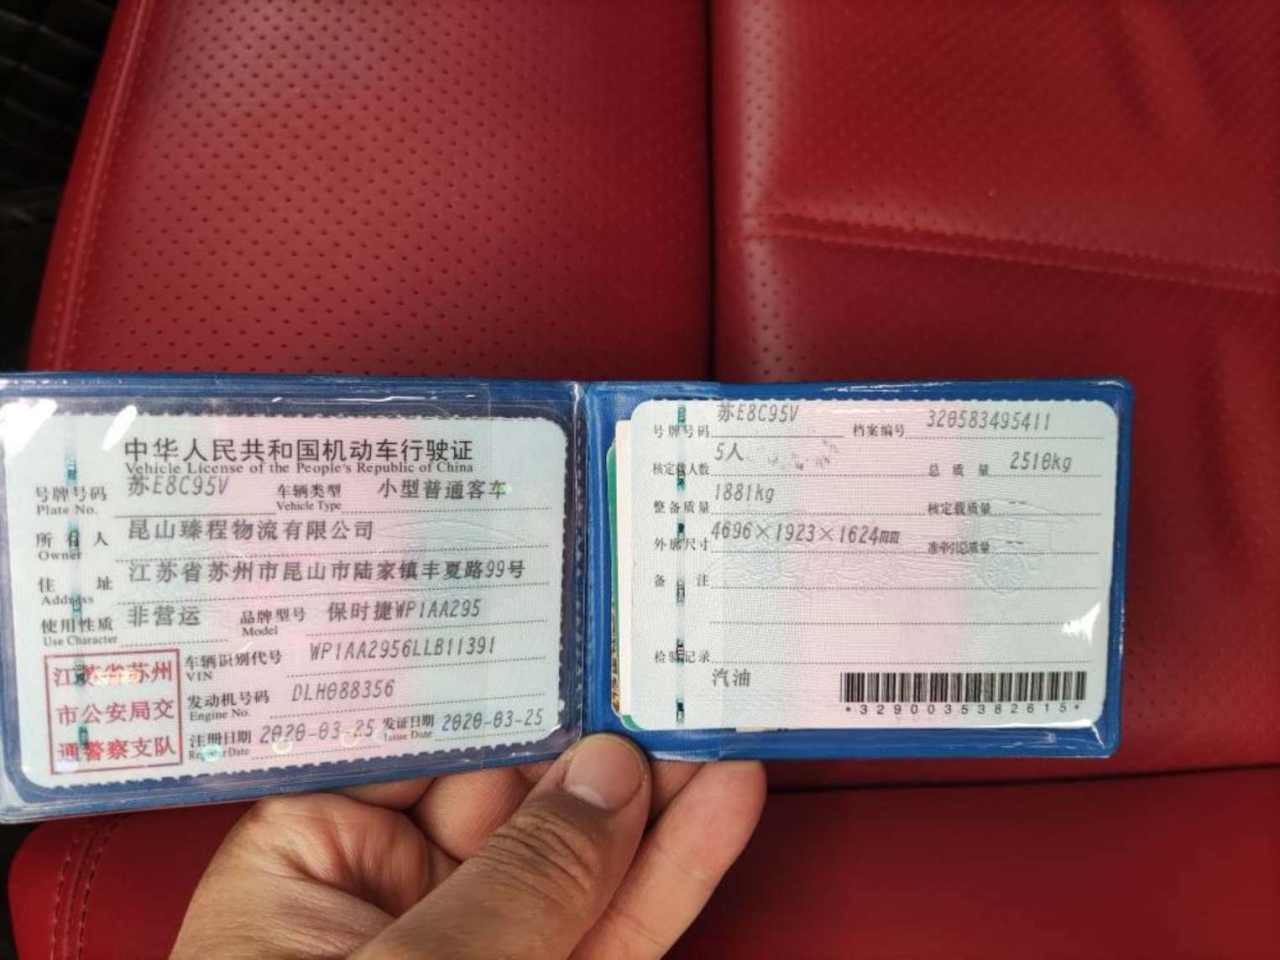 中华人民共和国机动车行驶证
Vehicle License of the People's Republic of China
号牌号码 苏E8C95V 车辆类型 小型普通客车
Plate No. Vehicle Type
所有人 昆山臻程物流有限公司
Owner
住址 江苏省苏州市昆山市陆家镇丰夏路99号
Address
使用性质 非营运 品牌型号 保时捷WP1AA295
Use Character Model
车辆识别代号 WP1AA2956LLB11391
VIN
发动机号码 DLH088356
Engine No.
注册日期 2020-03-25 发证日期 2020-03-25
Register Date Issue Date
江苏省苏州
市公安局交
通警察支队
号牌号码 苏E8C95V 档案编号 320583495411
核定载人数 5人 总质量 2510kg
整备质量 1881kg 核定载质量 --
外廓尺寸 4696×1923×1624mm 准牵引总质量 --
备注
检验记录
汽油
*3290035382615*